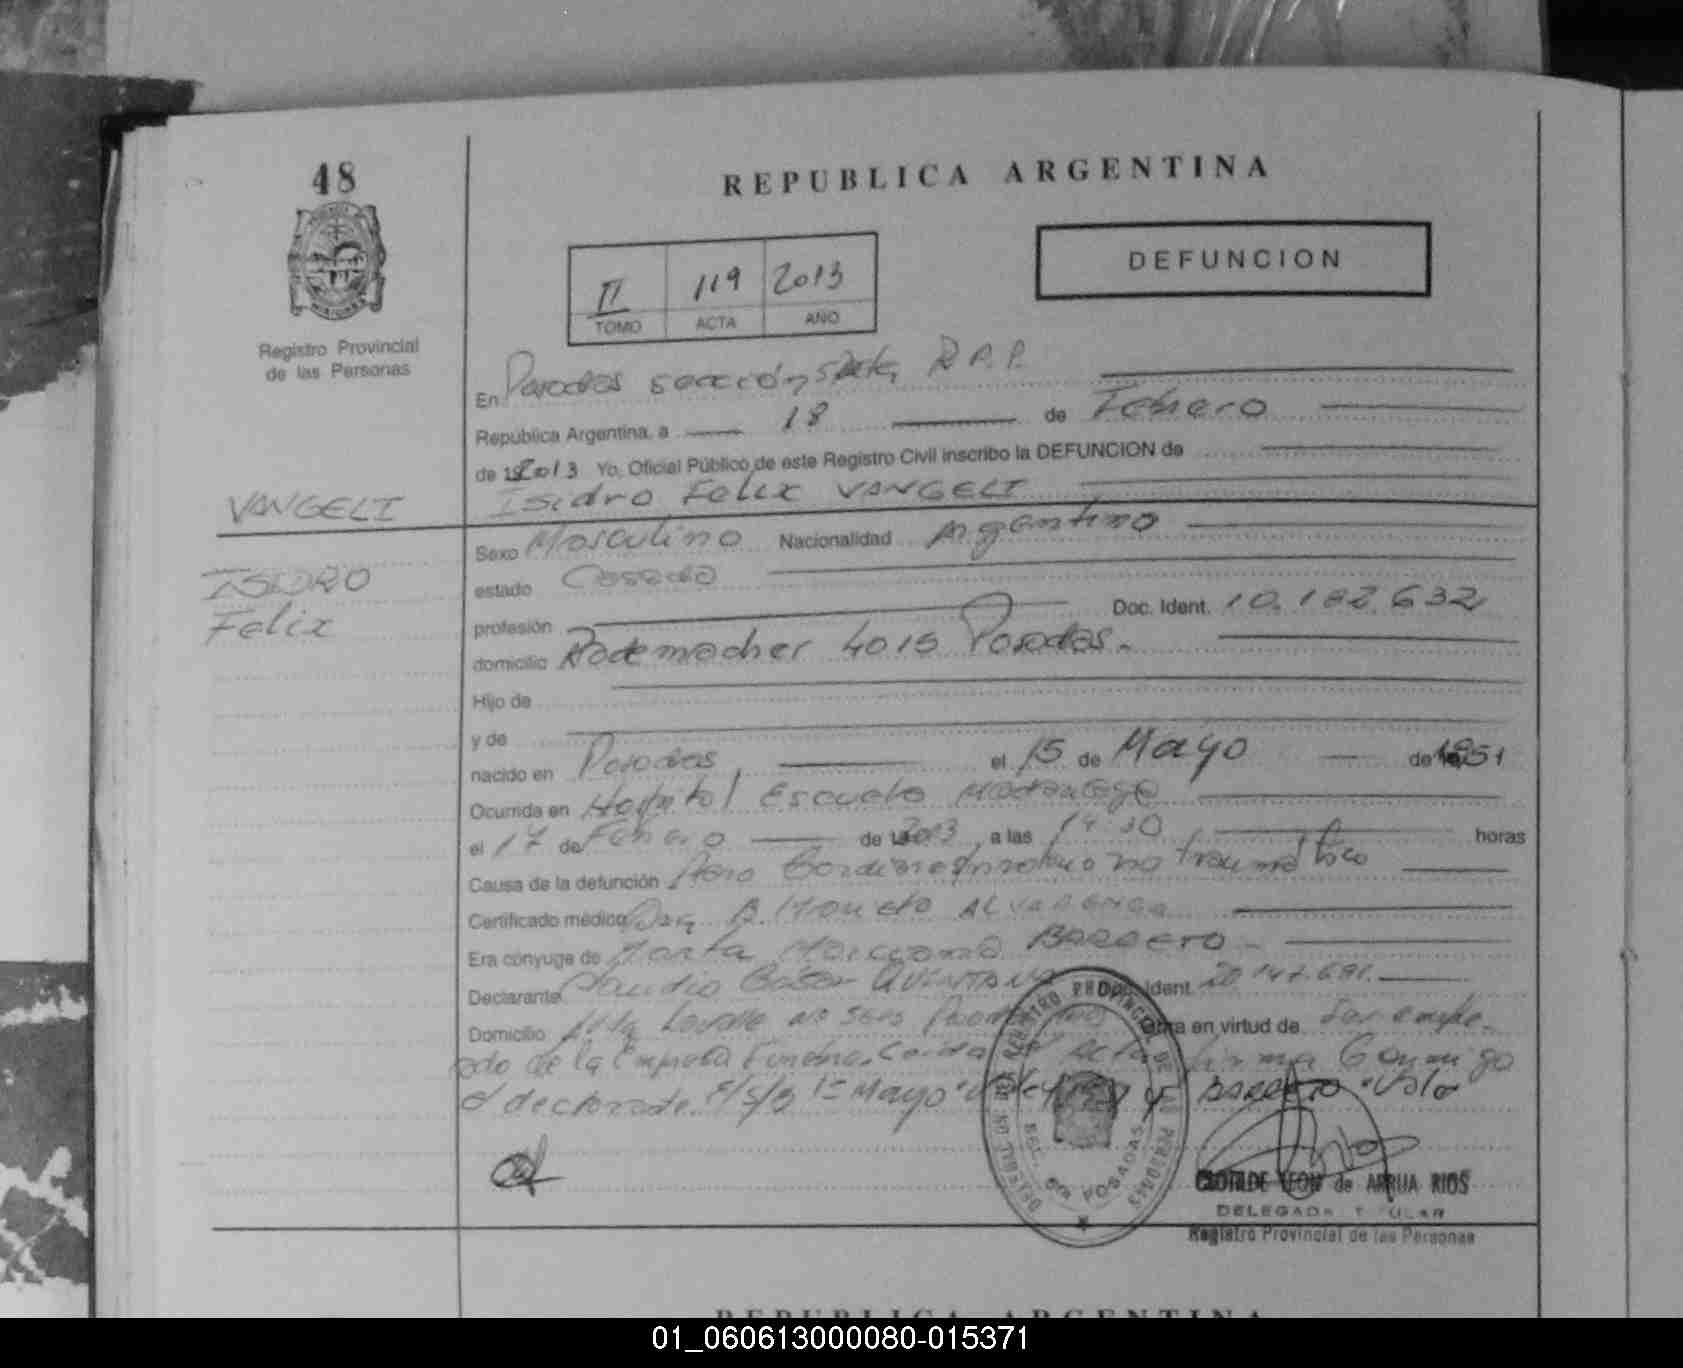 48
REPUBLICA ARGENTINA
DEFUNCION
II 119 2013
TOMO ACTA AÑO
Registro Provincial
de las Personas
En Posadas sección sexta R.P.P.
República Argentina, a 18 de Febrero
de 2013 Yo, Oficial Público de este Registro Civil inscribo la DEFUNCION de
VANGELI
Isidro Felix VANGELI
ISIDRO
Felix
Sexo Masculino Nacionalidad Argentino
estado Casado
profesión Doc. Ident. 10.182.632
domicilio Rademacher 4015 Posadas.
Hijo de
y de
nacido en Posadas el 15 de Mayo de 1951
Ocurrida en Hospital Escuela Madariaga
el 17 de Febrero de 2013 a las 14.30 horas
Causa de la defunción Paro Cardiorespiratorio no traumático
Certificado médico ALVARENGA
Era cónyuge de BARRETO
Declarante Claudio César QUINTANA Doc. Ident. 20.147.691.
Domicilio Obra en virtud de Ser emple-
ado de la Empresa Funebre. Leida el Acta firma Conmigo
el declarante. 1º Mayo BARRETO Vale
REGISTRO PROVINCIAL DE LAS PERSONAS
POSADAS
CLOTILDE LEON de ARRUA RIOS
DELEGADA TITULAR
Registro Provincial de las Personas
REPUBLICA ARGENTINA
01_060613000080-015371